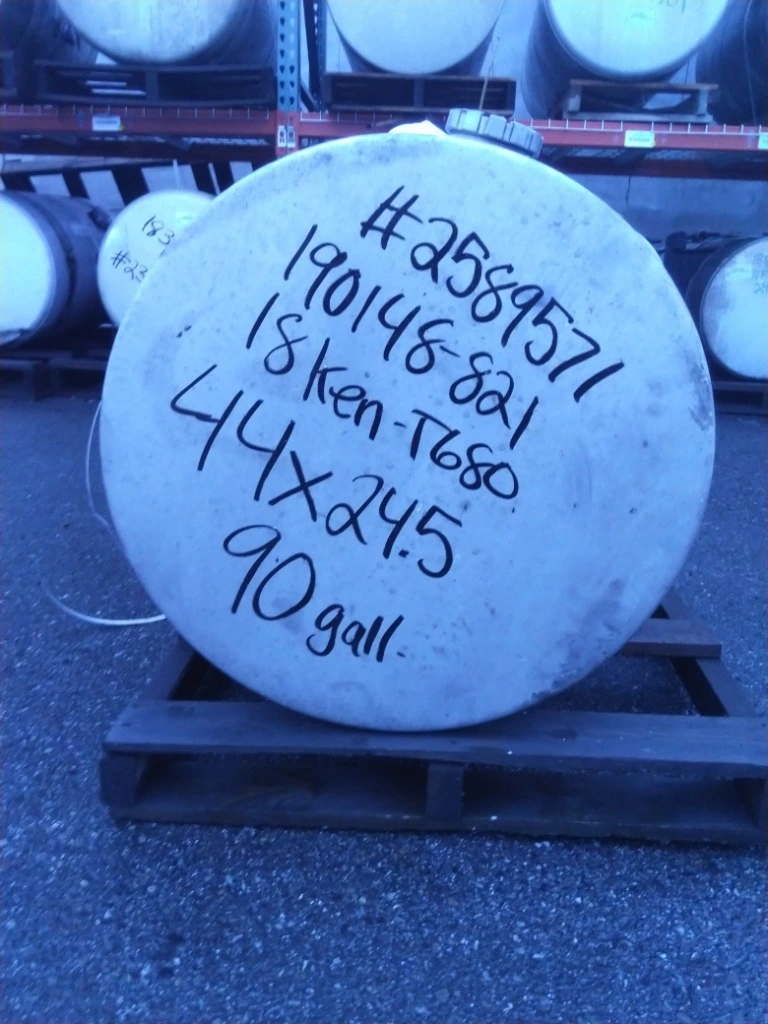 #2589571
190148-821
18 Ken-T680
44x24.5
90 gall.
183
#23